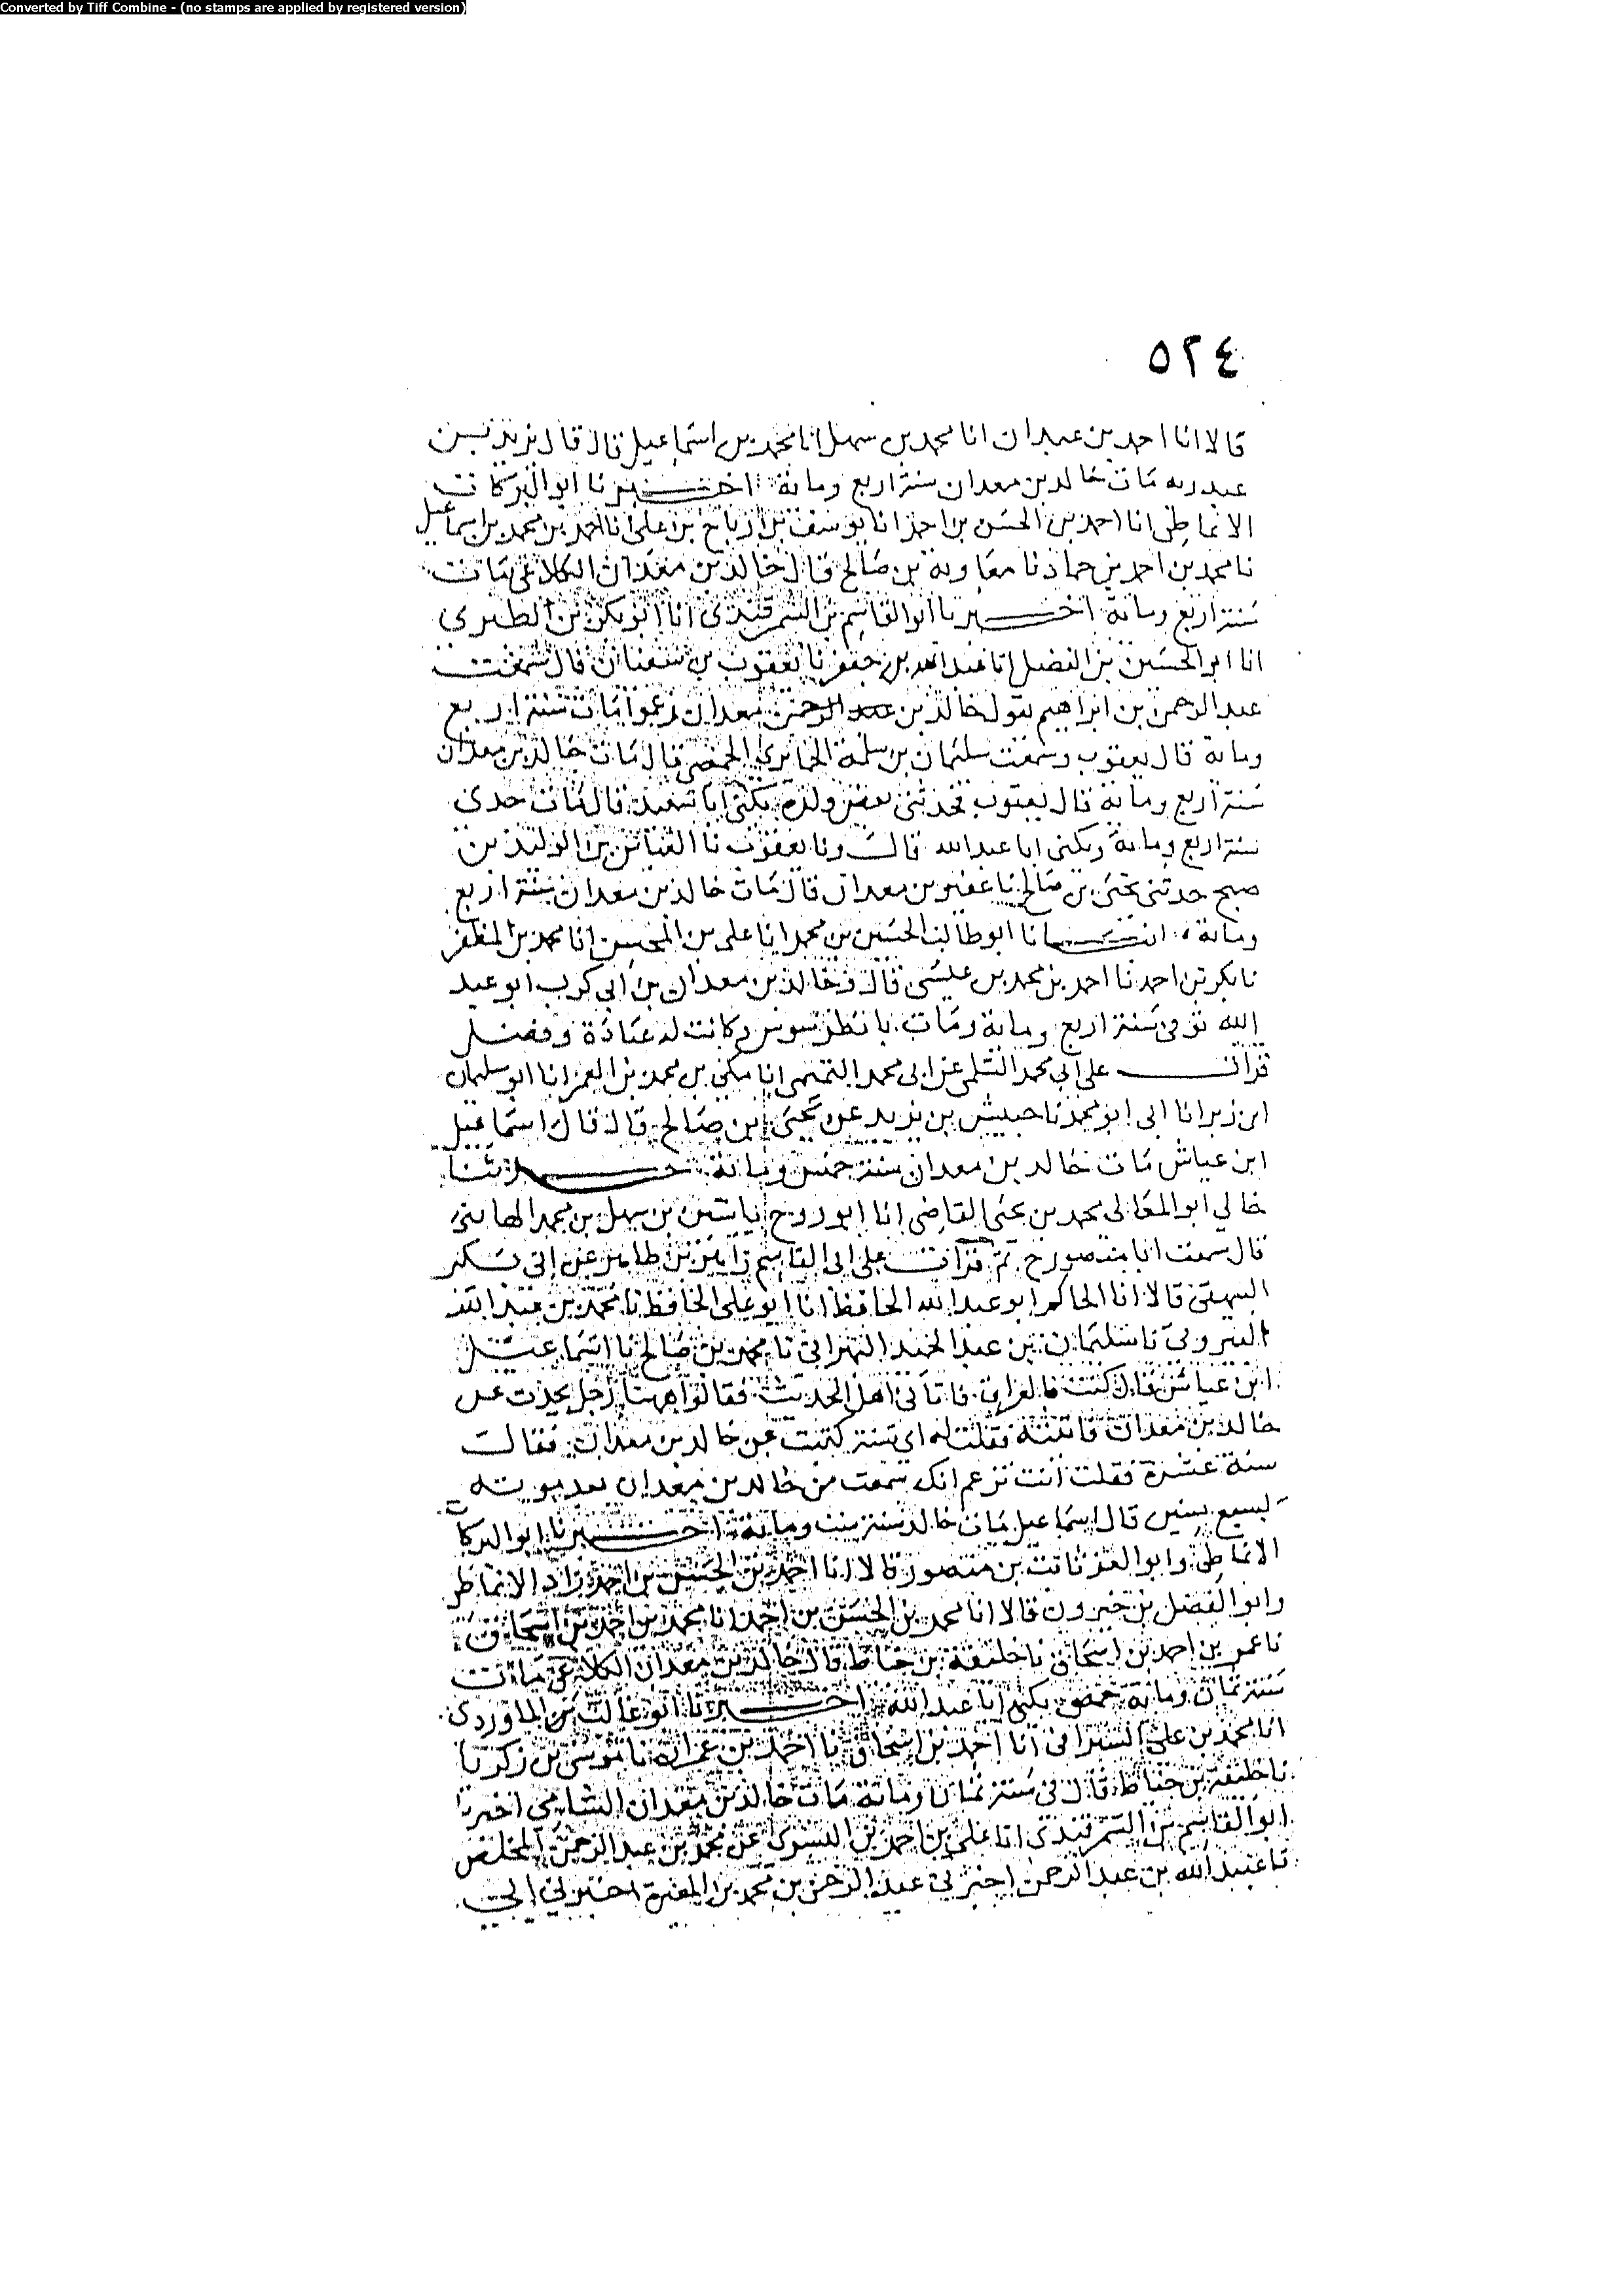 Converted by Tiff Combine - (no stamps are applied by registered version)
٥٢٤
قالا انا احمد بن عبدان انا محمد بن سهل انا محمد بن اسماعيل قال قال يزيد بن
عبد ربه مات خالد بن معدان سنة اربع ومائة اخبرنا ابو البركات
الانماطي انا احمد بن الحسن بن احمد انا يوسف بن رباح بن علي انا احمد بن محمد بن اسماعيل
نا محمد بن احمد بن حماد نا معاوية بن صالح قال خالد بن معدان الكلاعي مات
سنة اربع ومائة اخبرنا ابو القاسم بن السمرقندي انا ابو بكر بن الطبري
انا ابو الحسين بن الفضل انا عبد الله بن جعفر نا يعقوب بن سفيان قال سمعت
عبد الرحمن بن ابراهيم يقول خالد بن معدان زعموا مات سنة اربع
ومائة قال يعقوب وسمعت سليمان بن سلمة الخبائري الحمصي قال مات خالد بن معدان
سنة اربع ومائة قال يعقوب فحدثني بعض ولده يكنى ابا سعيد قال مات جدي
سنة اربع ومائة ويكنى ابا عبد الله قال ونا يعقوب نا العباس بن الوليد بن
صبح حدثني يحيى بن صالح نا عفير بن معدان قال مات خالد بن معدان سنة اربع
ومائة انبانا ابو طالب الحسين بن محمد انا علي بن المحسن انا محمد بن المظفر
نا بكر بن احمد نا احمد بن محمد بن عيسى قال وخالد بن معدان بن ابي كرب ابو عبد
الله توفي سنة اربع ومائة ومات بانطرسوس وكانت له عبادة وفضل
قرات على ابي محمد السلمي عن ابي محمد التميمي انا مكي بن محمد بن الغمر انا ابو سليمان
ابن زبر انا ابي ابو محمد نا حبيش بن يزيد عن يحيى بن صالح قال قال اسماعيل
ابن عياش مات خالد بن معدان سنة خمس ومائة حدثنا
خالي ابو المعالي محمد بن يحيى القاضي انا ابو روح ياسين بن سهل بن محمد
قال سمعت ابا منصور ح ثم قرات على ابي القاسم زاهر بن طاهر عن ابي بكر
البيهقي قالا انا الحاكم ابو عبد الله الحافظ انا ابو علي الحافظ نا محمد بن عبد الله
البيروتي نا سليمان بن عبد الحميد البهراني نا محمد بن صالح نا اسماعيل
ابن عياش قال كنت بالعراق فاتاني اهل الحديث فقالوا ههنا رجل يحدث عن
خالد بن معدان فاتيته فقلت له اي سنة كتبت عن خالد بن معدان فقال
سنة عشرة فقلت انت تزعم انك سمعت من خالد بن معدان بعد موته
بسبع سنين قال اسماعيل مات خالد سنة ست ومائة اخبرنا ابو البركات
الانماطي وابو العز ثابت بن منصور قالا انا احمد بن الحسن بن احمد زاد الانماطي
وابو الفضل بن خيرون قالا انا محمد بن الحسن بن احمد انا محمد بن احمد بن اسحاق
نا عمر بن احمد بن اسحاق نا خليفة بن خياط قال خالد بن معدان الكلاعي مات
سنة ثمان ومائة بحمص يكنى ابا عبد الله اخبرنا ابو غالب بن الماوردي
انا محمد بن علي السيرافي انا احمد بن اسحاق نا احمد بن عمران نا موسى بن زكريا
نا خليفة بن خياط قال في سنة ثمان ومائة مات خالد بن معدان الشامي اخبرنا
ابو القاسم بن السمرقندي انا علي بن احمد بن البسري عن محمد بن عبد الرحمن المخلص
نا عبيد الله بن عبد الرحمن اخبرني عبد الرحمن بن محمد بن المغيرة اخبرني ابي